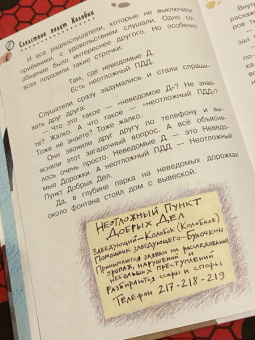 Следствие ведут Колобки
И все радиослушатели, которые не выключили
приёмники, с удовольствием слушали. Одно со-
общение было интереснее другого. Но особенно
всех поразили такие строчки:
Там, где неведомые Д,
Есть неотложный ПДД.
Слушатели сразу задумались и стали спраши-
вать друг друга:
— Что это такое — «неведомые Д»? Не знае-
те? Жалко. А что такое — «неотложный ПДД»?
Тоже не знаете? Тоже жалко.
Они звонили друг другу по телефону и вы-
ясняли этот загадочный вопрос. А всё объясня-
лось очень просто. Неведомые Д — это Неведо-
мые Дорожки. А неотложный ПДД — Неотложный
Пункт Добрых Дел.
Да, в глубине парка на неведомых дорожках
около фонтана стоял дом с вывеской:
НЕОТЛОЖНЫЙ ПУНКТ
ДОБРЫХ ДЕЛ
Заведующий—Колобок (Колобков)
Помощник заведующего—Булочкин
Принимаются заявки на расследования
пропаж, нарушений и
небольших преступлений
Разбираются ссоры и споры
Телефон 217-218-219